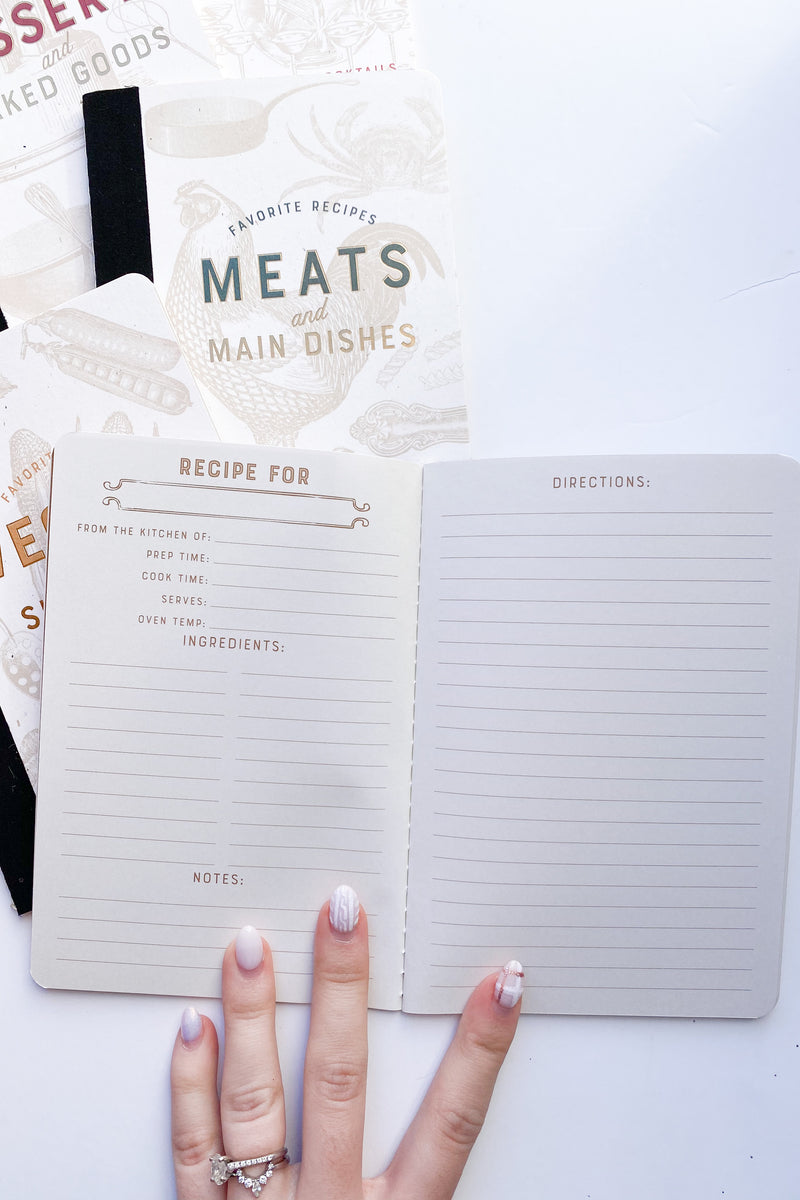 and
FAVORITE RECIPES
MEATS
and
MAIN DISHES
RECIPE FOR
FROM THE KITCHEN OF:
PREP TIME:
COOK TIME:
SERVES:
OVEN TEMP:
INGREDIENTS:
NOTES:
DIRECTIONS: